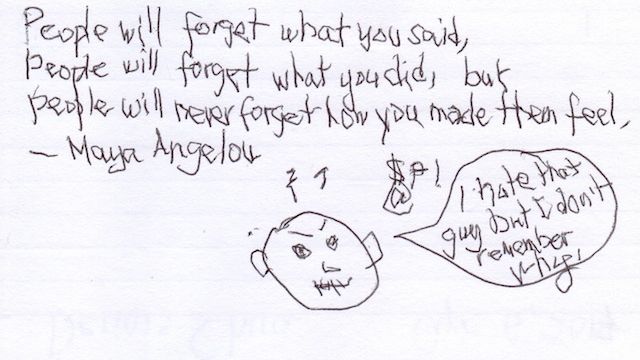 People will forget what you said,
people will forget what you did, but
people will never forget how you made them feel.
— Maya Angelou
$#!
@
I hate that
guy but I don't
remember
why.